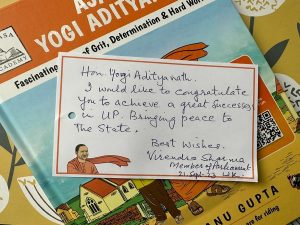 YOGI ADITYANA
Fascinating
of Grit, Determination & Hard Wor
ACADEMY
Hon. Yogi Adityanath.
I would like to congratulate
you to achieve a great Successes
in UP. Bringing peace to
The State.
Best Wishes.
Virendra Sharma
Member of Parliament
NU GUPTA